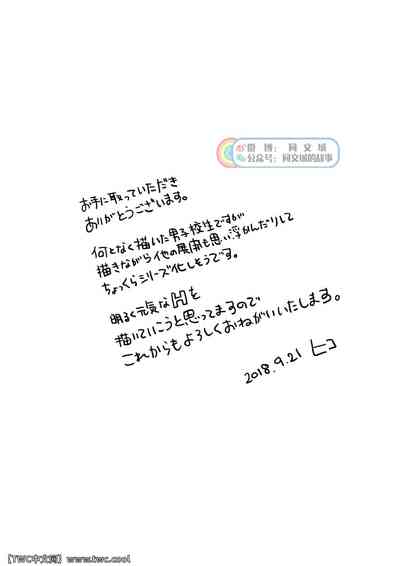 微 博： 同文城
公众号：同文城的故事
お手に取っていただき
ありがとうございます。
何となく描いた男子校生ですが
描きながら他の展開も思い浮かんだりして
ちょっくらシリーズ化しそうです。
明るく元気なHを
描いていこうと思ってますので
これからもよろしくおねがいいたします。
2018.9.21 ヒコ
【TWC中文网】www.twc.cool